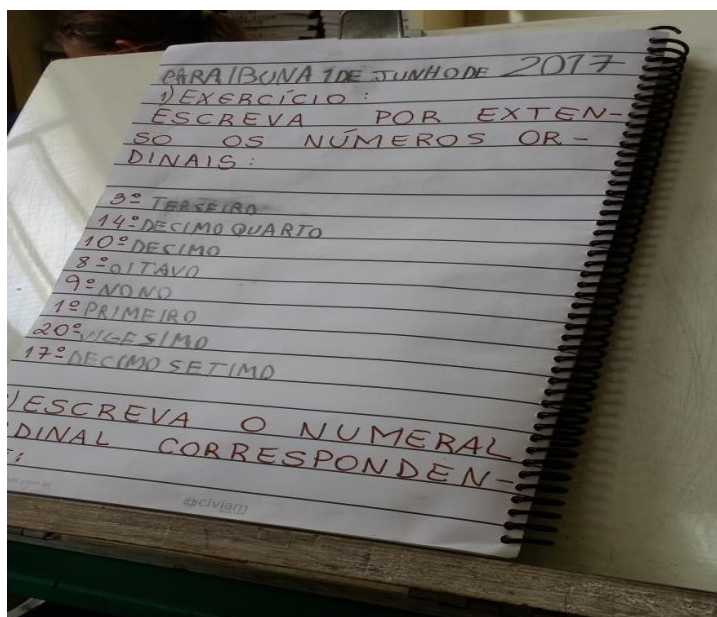 PARAIBUNA 1 DE JUNHO DE 2017
1) EXERCÍCIO :
ESCREVA POR EXTEN-
SO OS NÚMEROS OR-
DINAIS :
3º TERSEIRO
14º DECIMO QUARTO
10º DECIMO
8º OITAVO
9º NONO
1º PRIMEIRO
20º VIGESIMO
17º DECIMO SETIMO
) ESCREVA O NUMERAL
DINAL CORRESPONDEN-
civiam